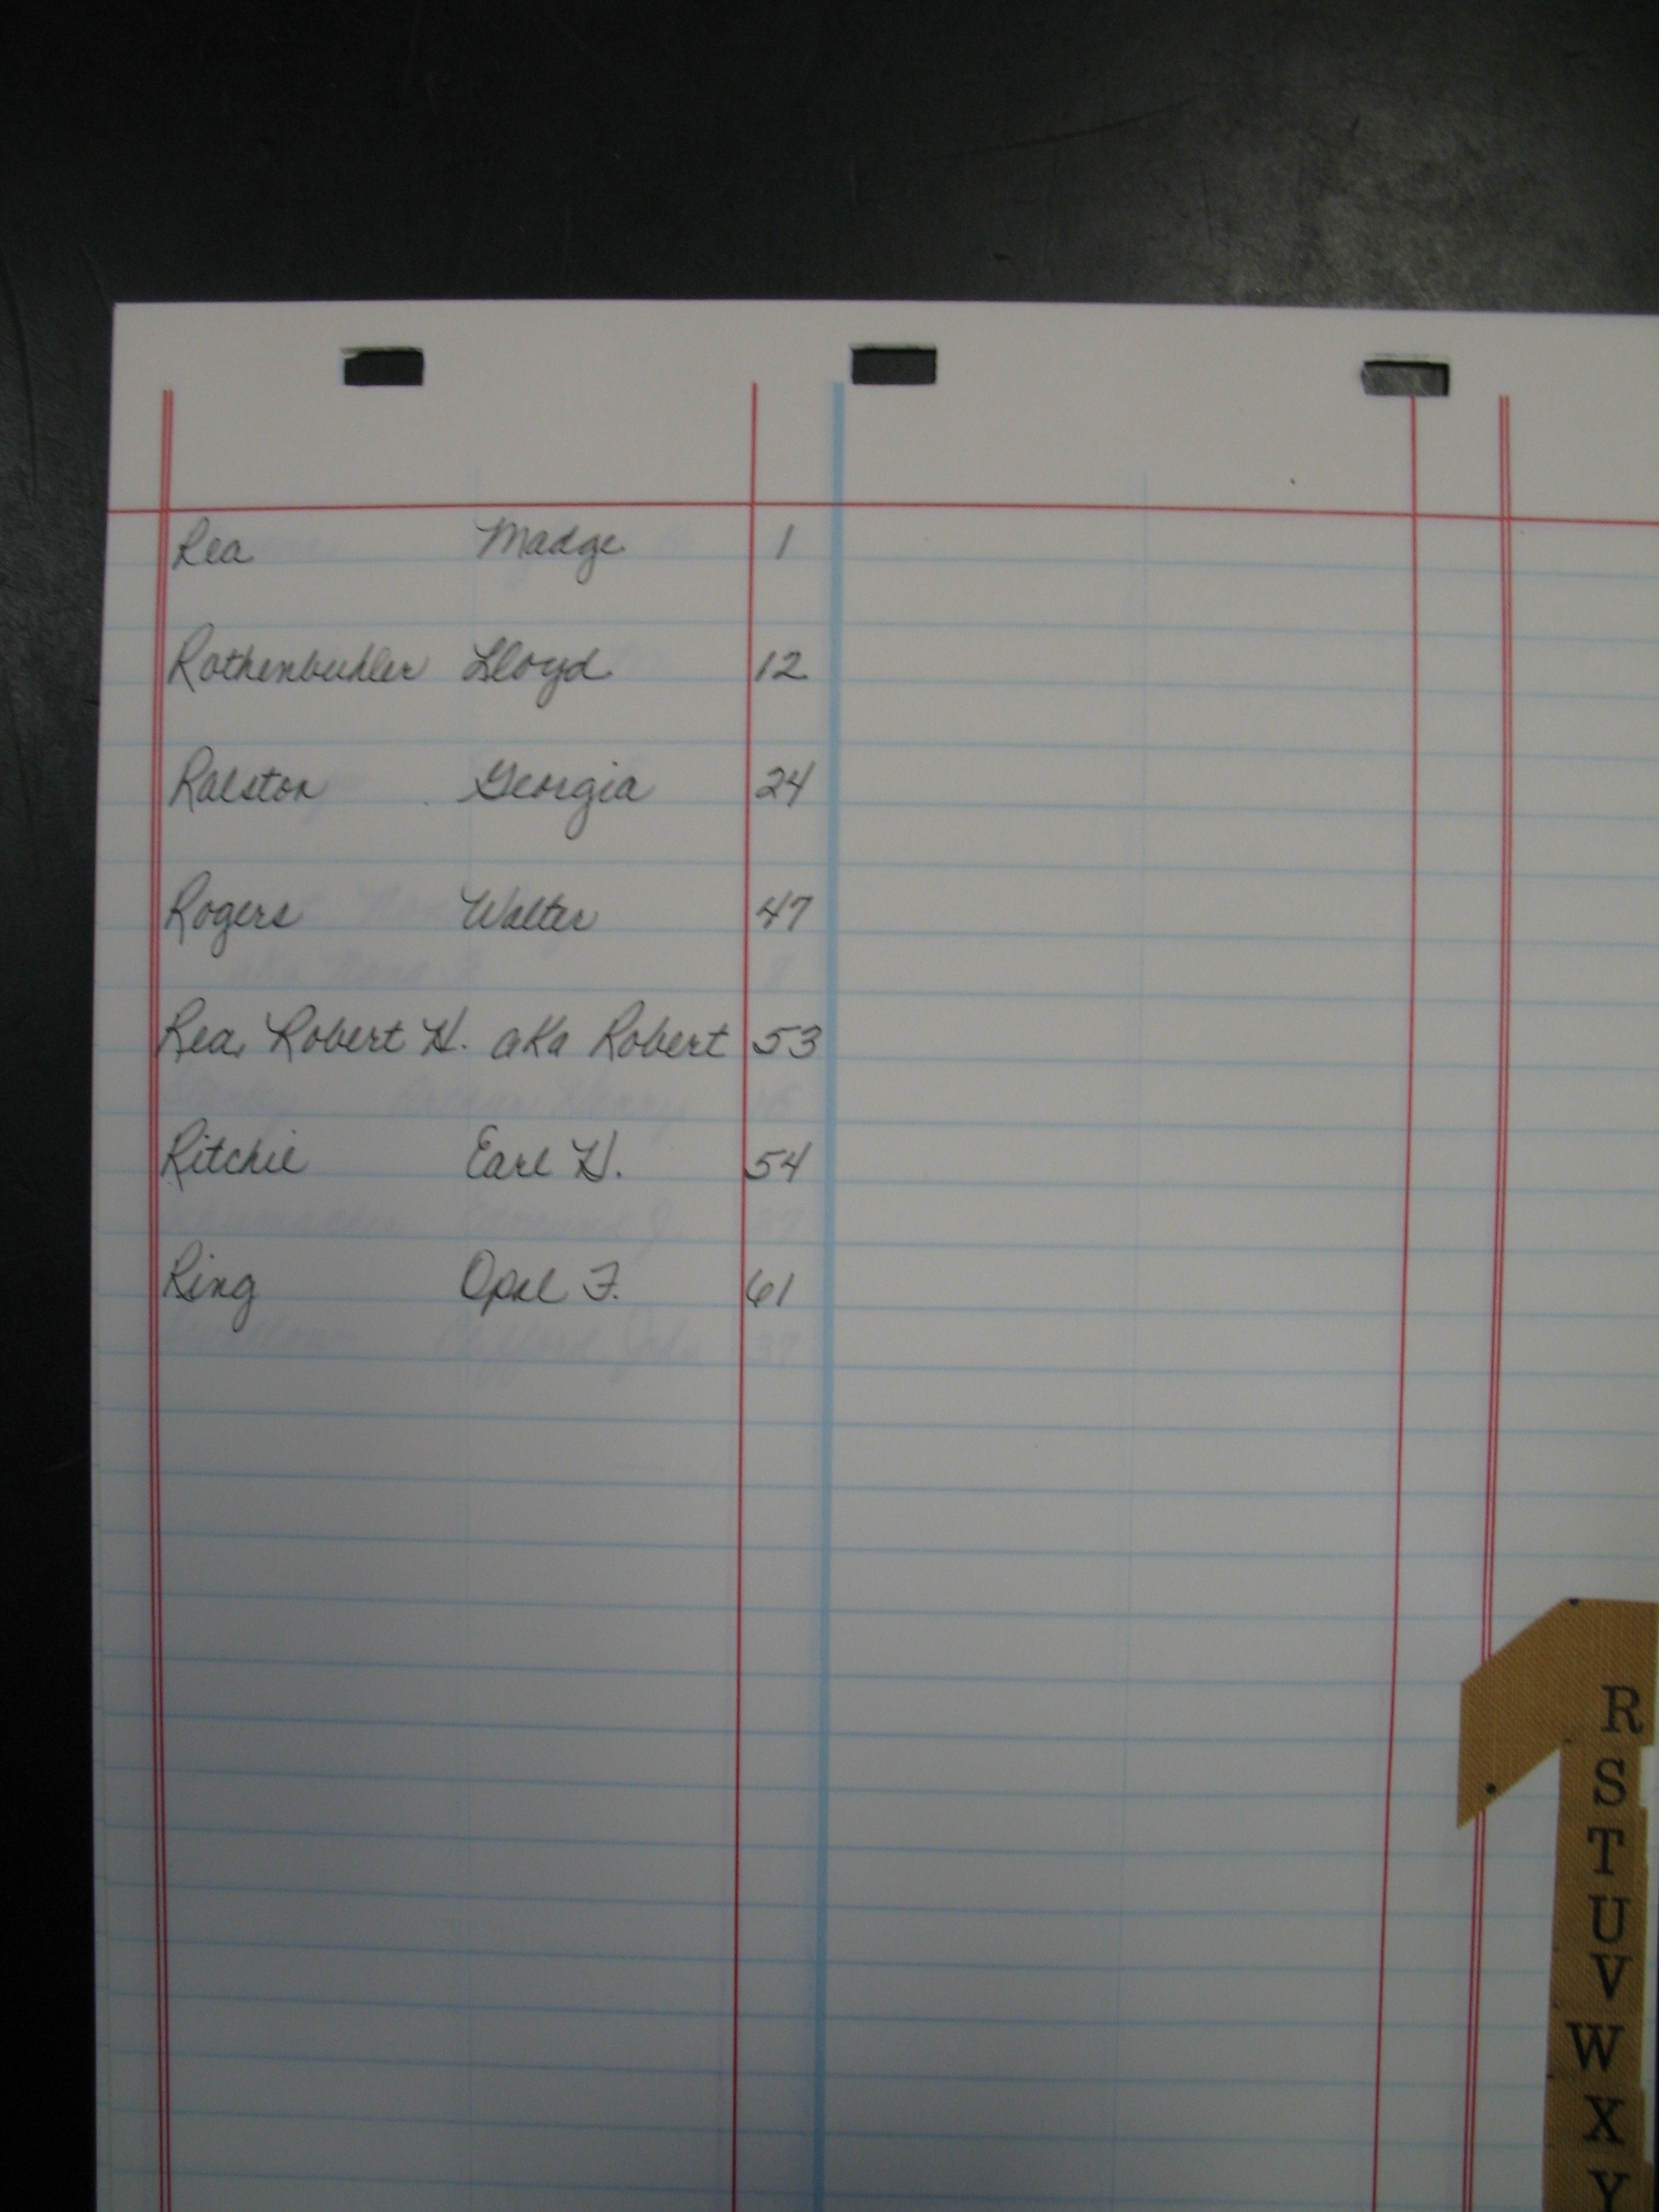 Rea Madge 1
Rothenbuhler Lloyd 12
Ralston Georgia 24
Rogers Walter 47
Rea, Robert H. aka Robert 53
Ritchie Earl H. 54
Ring Opal F. 61
R
S
T
U
V
W
X
Y